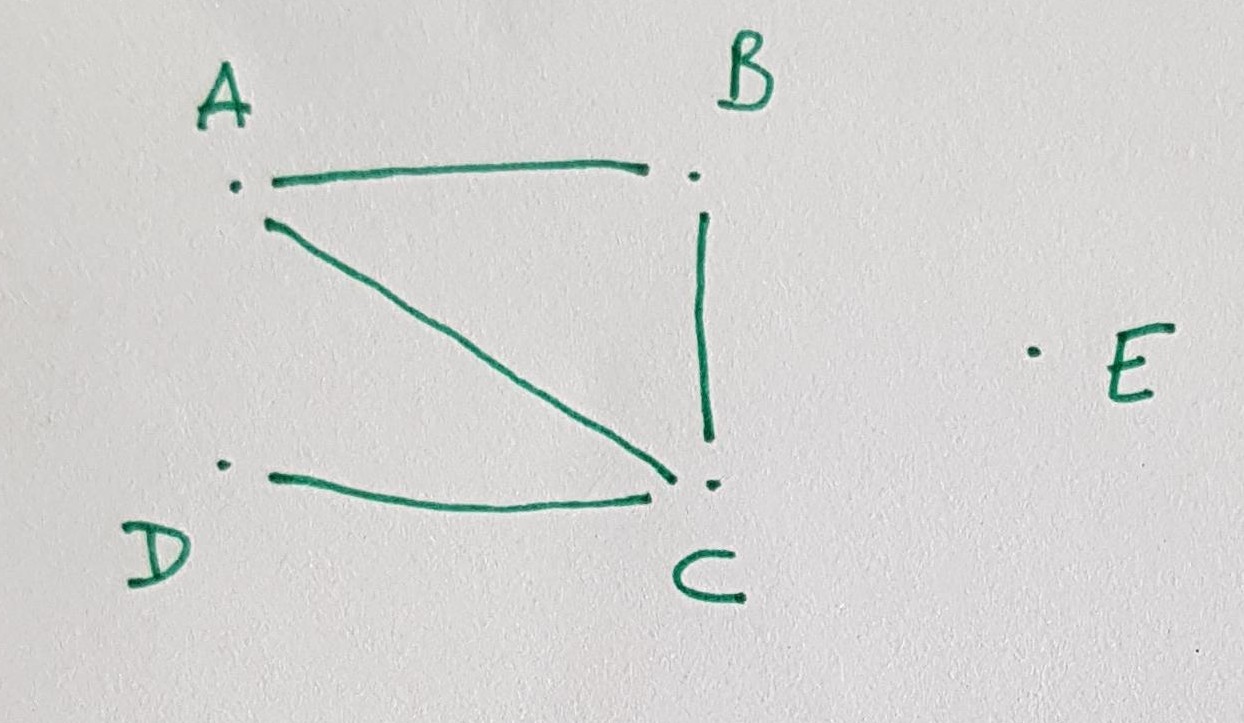 A
B
E
D
C